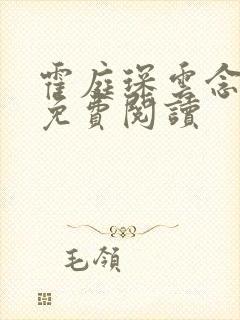 霍庭琛雲念
免費閱讀
毛領